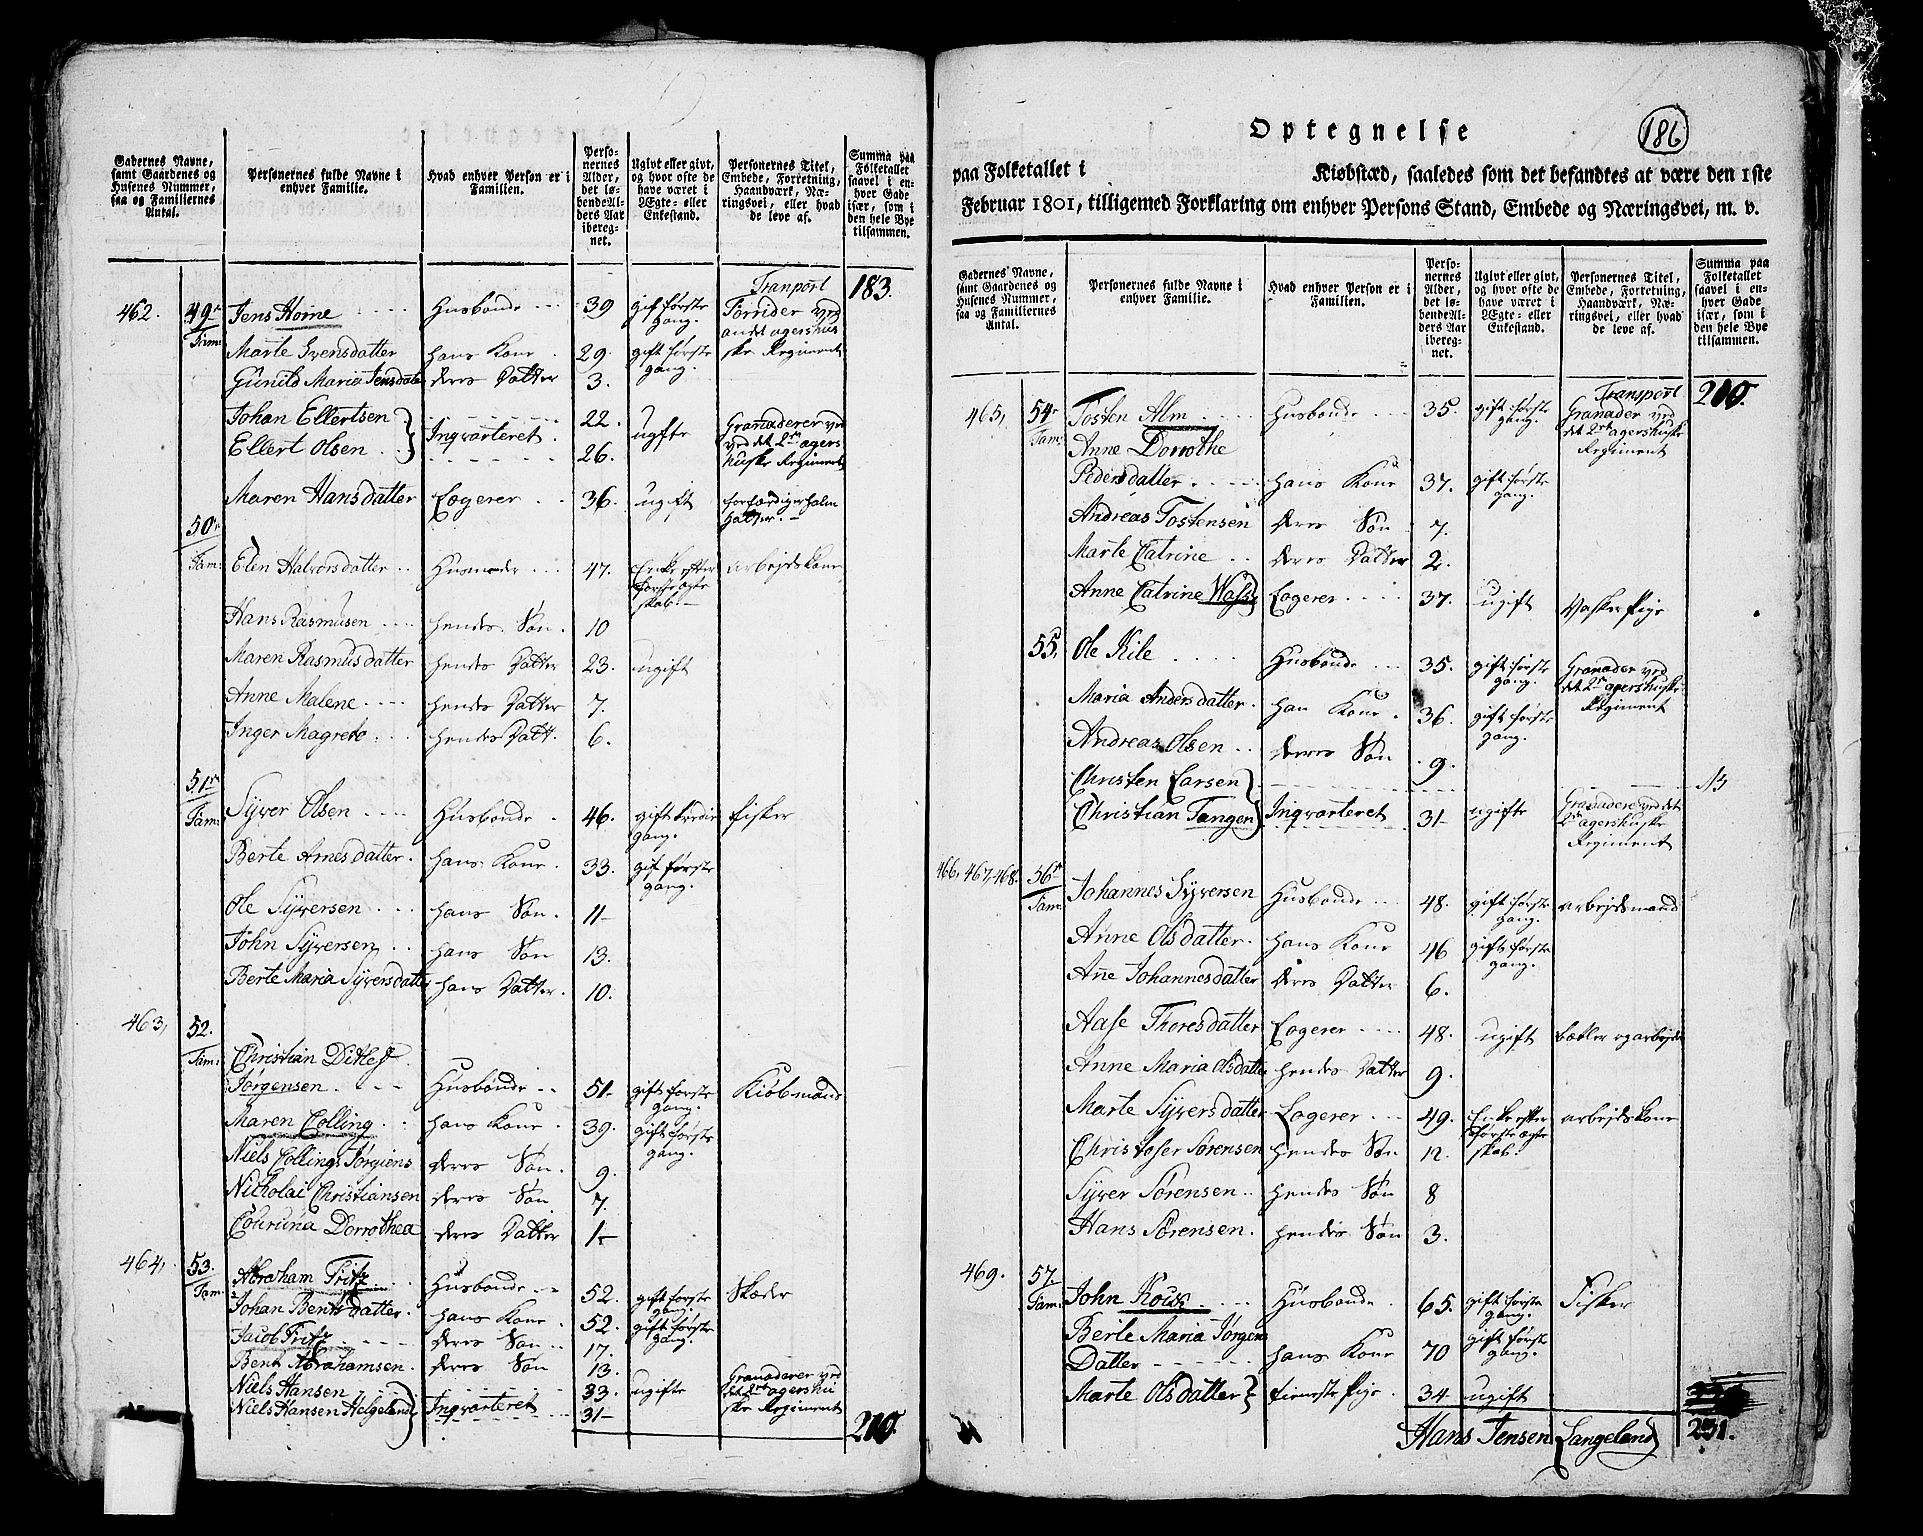 Gadernes Navne, samt Gaardenes og Husenes Nummer, saa og Familiernes Antal.
Personernes fulde Navne i enhver Familie.
Hvad enhver Person er i Familien.
Personernes Alder, det løbende Alders Aar iberegnet.
Ugivt eller givt, og hvor ofte de have været i Ægte- eller Enkestand.
Personernes Titel, Embede, Forretning, Haandværk, Næringsvei, eller hvad de leve af.
Summa paa Folketallet saavel i enhver Gade især, som i den hele Bye tilsammen.
Tranport 183.
462. 49de Fam: Jens Horne Husbonde 39 gift første gang. ved andet agershuske Regiment
Marte Svensdatter hans Kone 29. gift første gang.
Gunild Maria Jensdatter deres Datter 3.
Johan Ellertsen 22.
Ellert Olsen } Inqvarteret 26. ugifte Granaderer ved det 2det agershuske Regiment
Maren Hansdatter Logerer 36. ugift forfærdiger halm hatter.
50. Fam: Elen Halvorsdatter Husmoder 47. Enke efter første ægteskab. arbejdskone
Hans Rasmusen hendes Søn. 10
Maren Rasmusdatter hendes Datter 23. ugift
Anne Malene hendes Datter 7.
Inger Magrete hendes Datt. 6.
51. Fam: Syver Olsen Husbonde 46. gift tredie gang. fisker
Berte Arnesdatter. hans Kone. 33. gift første gang.
Ole Syversen hans Søn. 11
John Syversen hans Søn 13.
Berte Maria Syversdatter hans Datter. 10.
463, 52. Fam: Christian Ditlef
Jørgensen Husbonde 51 gift første gang. Kiøbmand
Maren Colling hans Kone 39. gift første gang.
Niels Collings Jørgens deres Søn. 9.
Nicholai Christiansen deres Søn 7.
Dorrothea deres Datter 1
464, 53. Fam: Abraham Fritz Husbonde 52. gift første gang
Johan Bentsdatter. hans Kone 52. gift første gang.
Jacob Fritz deres Søn 17.
Bent Abrahamsen. deres Søn 13.
Niels Hansen 33.
Niels Hansen Helgeland } Inqvarteret 31 ugifte Granaderer ved det 2det agershuske Regiment
210.
Optegnelse
186
paa Folketallet i Kiøbstæd, saaledes som det befandtes at være den 1ste
Februar 1801, tilligemed Forklaring om enhver Persons Stand, Embede og Næringsvei, m. v.
Gadernes Navne, samt Gaardenes og Husenes Nummer, saa og Familiernes Antal.
Personernes fulde Navne i enhver Familie.
Hvad enhver Person er i Familien.
Personernes Alder, det løbende Alders Aar iberegnet.
Ugivt eller givt, og hvor ofte de have været i Ægte- eller Enkestand.
Personernes Titel, Embede, Forretning, Haandværk, Næringsvei, eller hvad de leve af.
Summa paa Folketallet saavel i enhver Gade især, som i den hele Bye tilsammen.
Transport 210.
465, 54 Fam: Tosten Alm Husbonde 35. gift første gang. Granader ved det 2det agershuske Regiment
Anne Dorrothe
Pedersdatter hans Kone 37. gift første gang.
Andreas Tostensen deres Søn 7.
Marte Catrine deres Datter 2.
Anne Catrine Logerer 37. ugift Vasker Pige
55, Ole Kile Husbonde 35. gift første gang. Granader ved det 2det agershuske Regiment
Maria Andersdatter. han Kone 36. gift første gang.
Andreas Olsen deres Søn 9.
Christen Larsen
Christian Tangen } Inqvarteret 31 ugifte Granadere ved det 2det agershuske Regiment
466, 467, 468. 56 Fam: Johannes Syversen Husbonde 48. gift første gang. arbejdsmand
Anne Olsdatter. hans Kone 46 gift første gang.
Ane Johannesdatter deres Datter 6.
Aase Thoresdatter Logerer 48. ugift betler og arbejder
Anne Maria Olsdatter hendes Datter 9.
Marte Syversdatter Logerer 49. Enke efter første ægteskab. arbejdskone
Christofer Sørensen hendes Søn 12.
Syver Sørensen hendes Søn 8
Hans Sørensen. hendes Søn 3.
469. 57. Fam: John Husbonde 65. gift første gang. Fisker
Berte Maria Jørgens
Datter hans Kone 70 gift første gang.
Marte Olsdatter tieneste Pige 34 ugift
Hans Jensen Langeland 231.